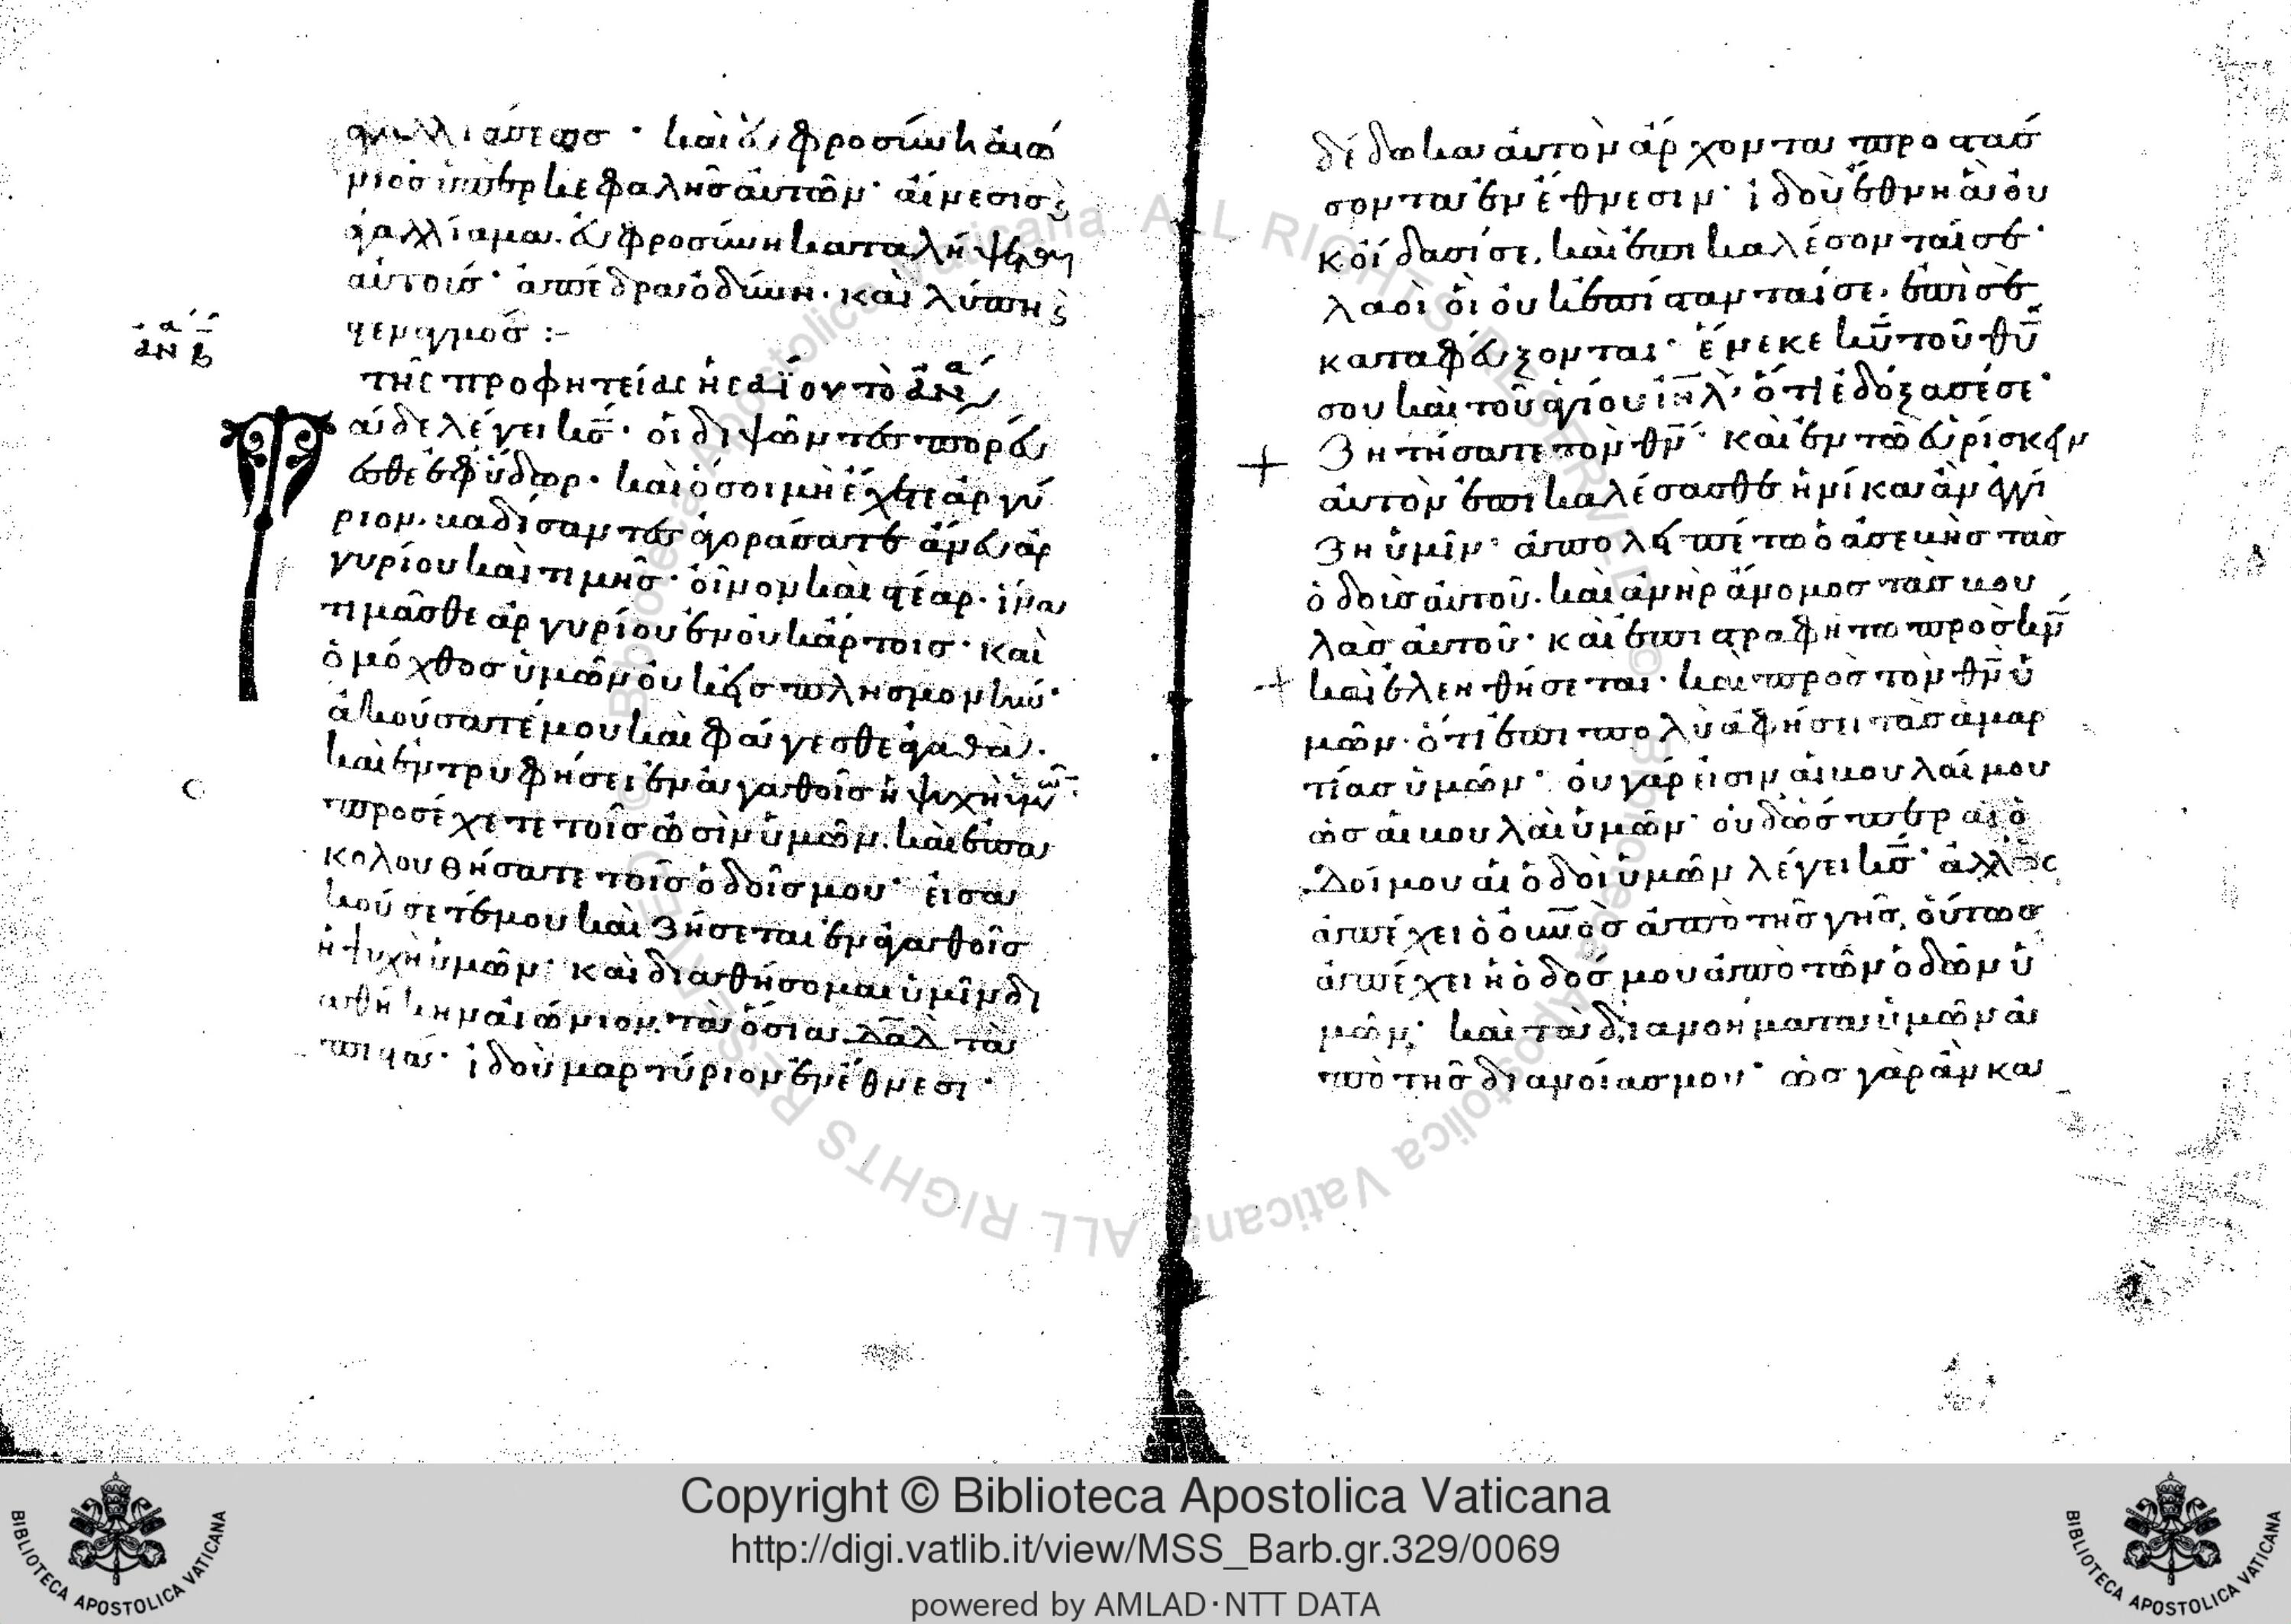 ἀγαλλιάσεως · καὶ εὐφροσύνη αἰώ
νιος ὑπὲρ κεφαλῆς αὐτῶν · αἴνεσις ϛ
ἀγαλλίαμα · εὐφροσύνη καταλήψεται
αὐτοίς · ἀπέδρα ὀδύνη · καὶ λύπη ϛ
στεναγμός :-
ἀν β
τῆς προφητείας ἡσαΐου τὸ ἀν
Τάδε λέγει κς · οἱ διψῶντες πορεύ
εσθε ἐφ ύδωρ · καὶ ὅσοι μὴ ἔχετε ἀργύ
ριον · βαδίσαντες ἀγοράσατε άνευ ἀρ
γυρίου καὶ τιμῆς · οἶνον καὶ στέαρ · ἱνα
τιμᾶσθε ἀργυρίου ἐν οὐκ άρτοις · καὶ
ὁ μόχθος ὑμῶν οὐκ εἰς πλησμονήν ·
ἀκούσατέ μου καὶ φάγεσθε ἀγαθὰ ·
καὶ ἐντρυφήσει ἐν ἀγαθοῖς ἡ ψυχὴ ὑμῶν ·
προσέχετε τοῖς ὠσὶν ὑμῶν · καὶ ἐπα
κολουθήσατε τοῖς ὁδοῖς μου · εἰσα
κούσετέ μου καὶ ζήσεται ἐν ἀγαθοῖς
ἡ ψυχὴ ὑμῶν · καὶ διαθήσομαι ὑμῖν δι
αθήκην αἰώνιον · τὰ ὅσια δαδ τὰ
πιστά · ἰδοὺ μαρτύριον ἐν ἔθνεσι ·
δέδωκα αὐτὸν ἀρχοντα προστάσ
σοντα ἐν ἔθνεσιν · ἰδοὺ ἔθνη ἁ οὐ
κ οίδασί σε, καὶ ἐπικαλέσονταί σε ·
λαοὶ οἱ οὐκ ἐπίστανταί σε, ἐπὶ σὲ
καταφεύξονται · ἕνεκε κυ τοῦ θυ
σου καὶ τοῦ ἁγίου ιηλ · ὅτι ἐδόξασέ σε ·
Ζητήσατε τὸν θν · καὶ ἐν τῶ εὑρίσκειν
αὐτὸν ἐπικαλέσασθε ἡνίκα ἀν ἐγγί
ζη ὑμῖν · ἀπολειπέτω ὁ ἀσεβὴς τὰς
ὁδοὺς αὐτοῦ · καὶ ἀνὴρ άνομος τὰς βου
λὰς αὐτοῦ · καὶ ἐπιστραφήτω πρὸς κν
καὶ ἐλεηθήσεται · καὶ πρὸς τὸν θν ὑ
μῶν · ὅτι ἐπιπολὺ ἀφήσει τὰς ἁμαρ
τίας ὑμῶν · ου γάρ εἰσιν αἱ βουλαί μου
ὡς αἱ βουλαὶ ὑμῶν · οὐδὲ ὥσπερ αἱ ὁ
δοί μου αἱ ὁδοὶ ὑμῶν λέγει κς · ἀλλ ὡς
ἀπέχει ὁ ουνος ἀπὸ τῆς γῆς, οὕτως
ἀπέχει ἡ ὁδός μου ἀπὸ τῶν ὁδῶν ὑ
μῶν · καὶ τὰ διανοήματα ὑμῶν ἀ
πὸ τῆς διανοίας μου · ὡς γὰρ ἀν κα
Copyright © Biblioteca Apostolica Vaticana
http://digi.vatlib.it/view/MSS_Barb.gr.329/0069
powered by AMLAD·NTT DATA
BIBLIOTECA APOSTOLICA VATICANA
BIBLIOTECA APOSTOLICA VATICANA